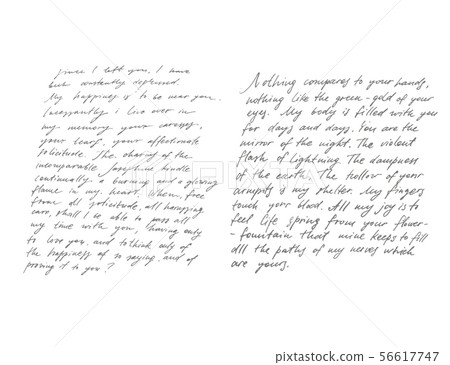 since I left you, I have
but constantly depressed.
My happiness is to be near you.
Incessantly i live over in
my memory your caresses,
your tears, your affectionate
solicitude. The charms of the
incomparable Josephine kindle
continually a burning and a glowing
flame in my heart. When, free
from all solicitude, all harassing
care, shall I be able to pass all
my time with you, having only
to love you, and to think only of
the happiness of so saying, and of
proving it to you?
Nothing compares to your hands,
nothing like the green-gold of your
eyes. My body is filled with you
for days and days. You are the
mirror of the night. The violent
flash of lightning. The dampness
of the earth. The hollow of your
armpits is my shelter. My fingers
touch your blood. All my joy is to
feel life spring from your flower-
-fountain that mine keeps to fill
all the paths of my nerves which
are yours.
PIXTA
pixta.jp - 56617747